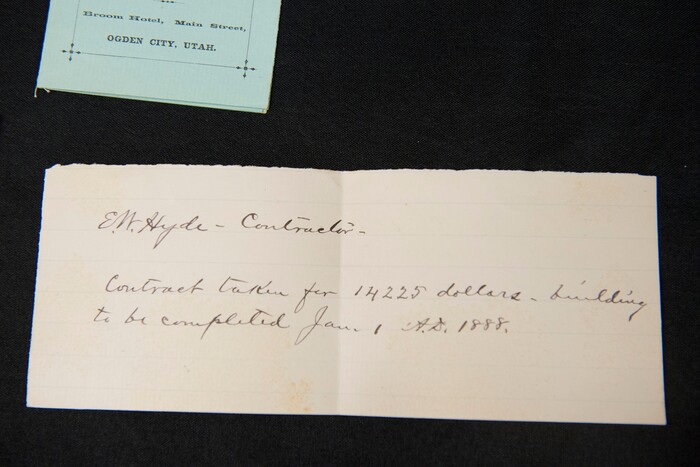 Broom Hotel, Main Street,
OGDEN CITY, UTAH.
E.W. Hyde - Contractor -
Contract taken for 14225 dollars - building
to be completed Jan. 1 A.D. 1888.